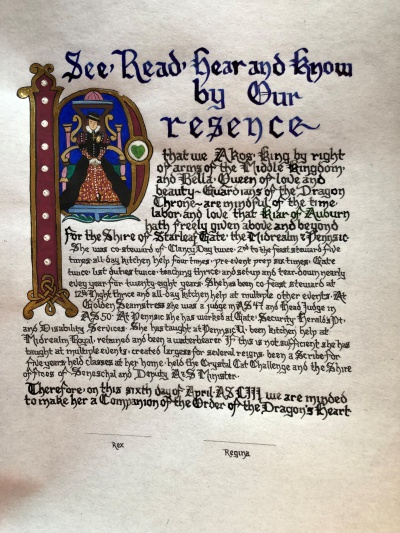 See, Read, Hear and Know
by Our
Presence
that we Akos, King by right
of arms of the Middle Kingdom
and Bella, Queen of love and
beauty, Guardians of the Dragon
Throne, are mindful of the time,
labor and love that Kiar of Auburn
hath freely given above and beyond
for the Shire of Starleaf Gate, the Midrealm & Pennsic.
She was co-steward of Clancy Day twice, 2nd to the feast steward five
times, all day kitchen help four times, pre-event prep six times, Gate
twice, list duties twice, teaching thrice, and setup and tear-down nearly
every year for twenty-eight years. She has been co-feast steward at
12th Night thrice and all-day kitchen help at multiple other events. At
Golden Seamstress she was a judge in AS 47 and Head Judge in
AS 50. At Pennsic she has worked at Gate, Security, Herald's Pt.,
and Disability Services. She has taught at Pennsic U, been kitchen help at
Midrealm Royal, retained and been a waterbearer. If this is not sufficient she has
taught at multiple events, created largess for several reigns, been a Scribe for
five years, held classes at her home, held the Crystal Cat Challenge and the Shire
offices of Seneschal and Deputy A&S Minister.
Therefore, on this sixth day of April, AS LIII, we are minded
to make her a Companion of the Order of the Dragon's Heart
Rex
Regina